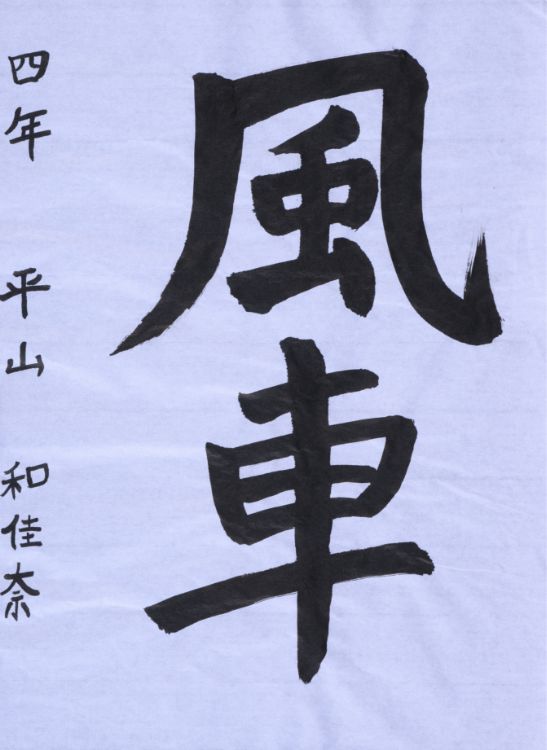 風車
四年 平山 和佳奈